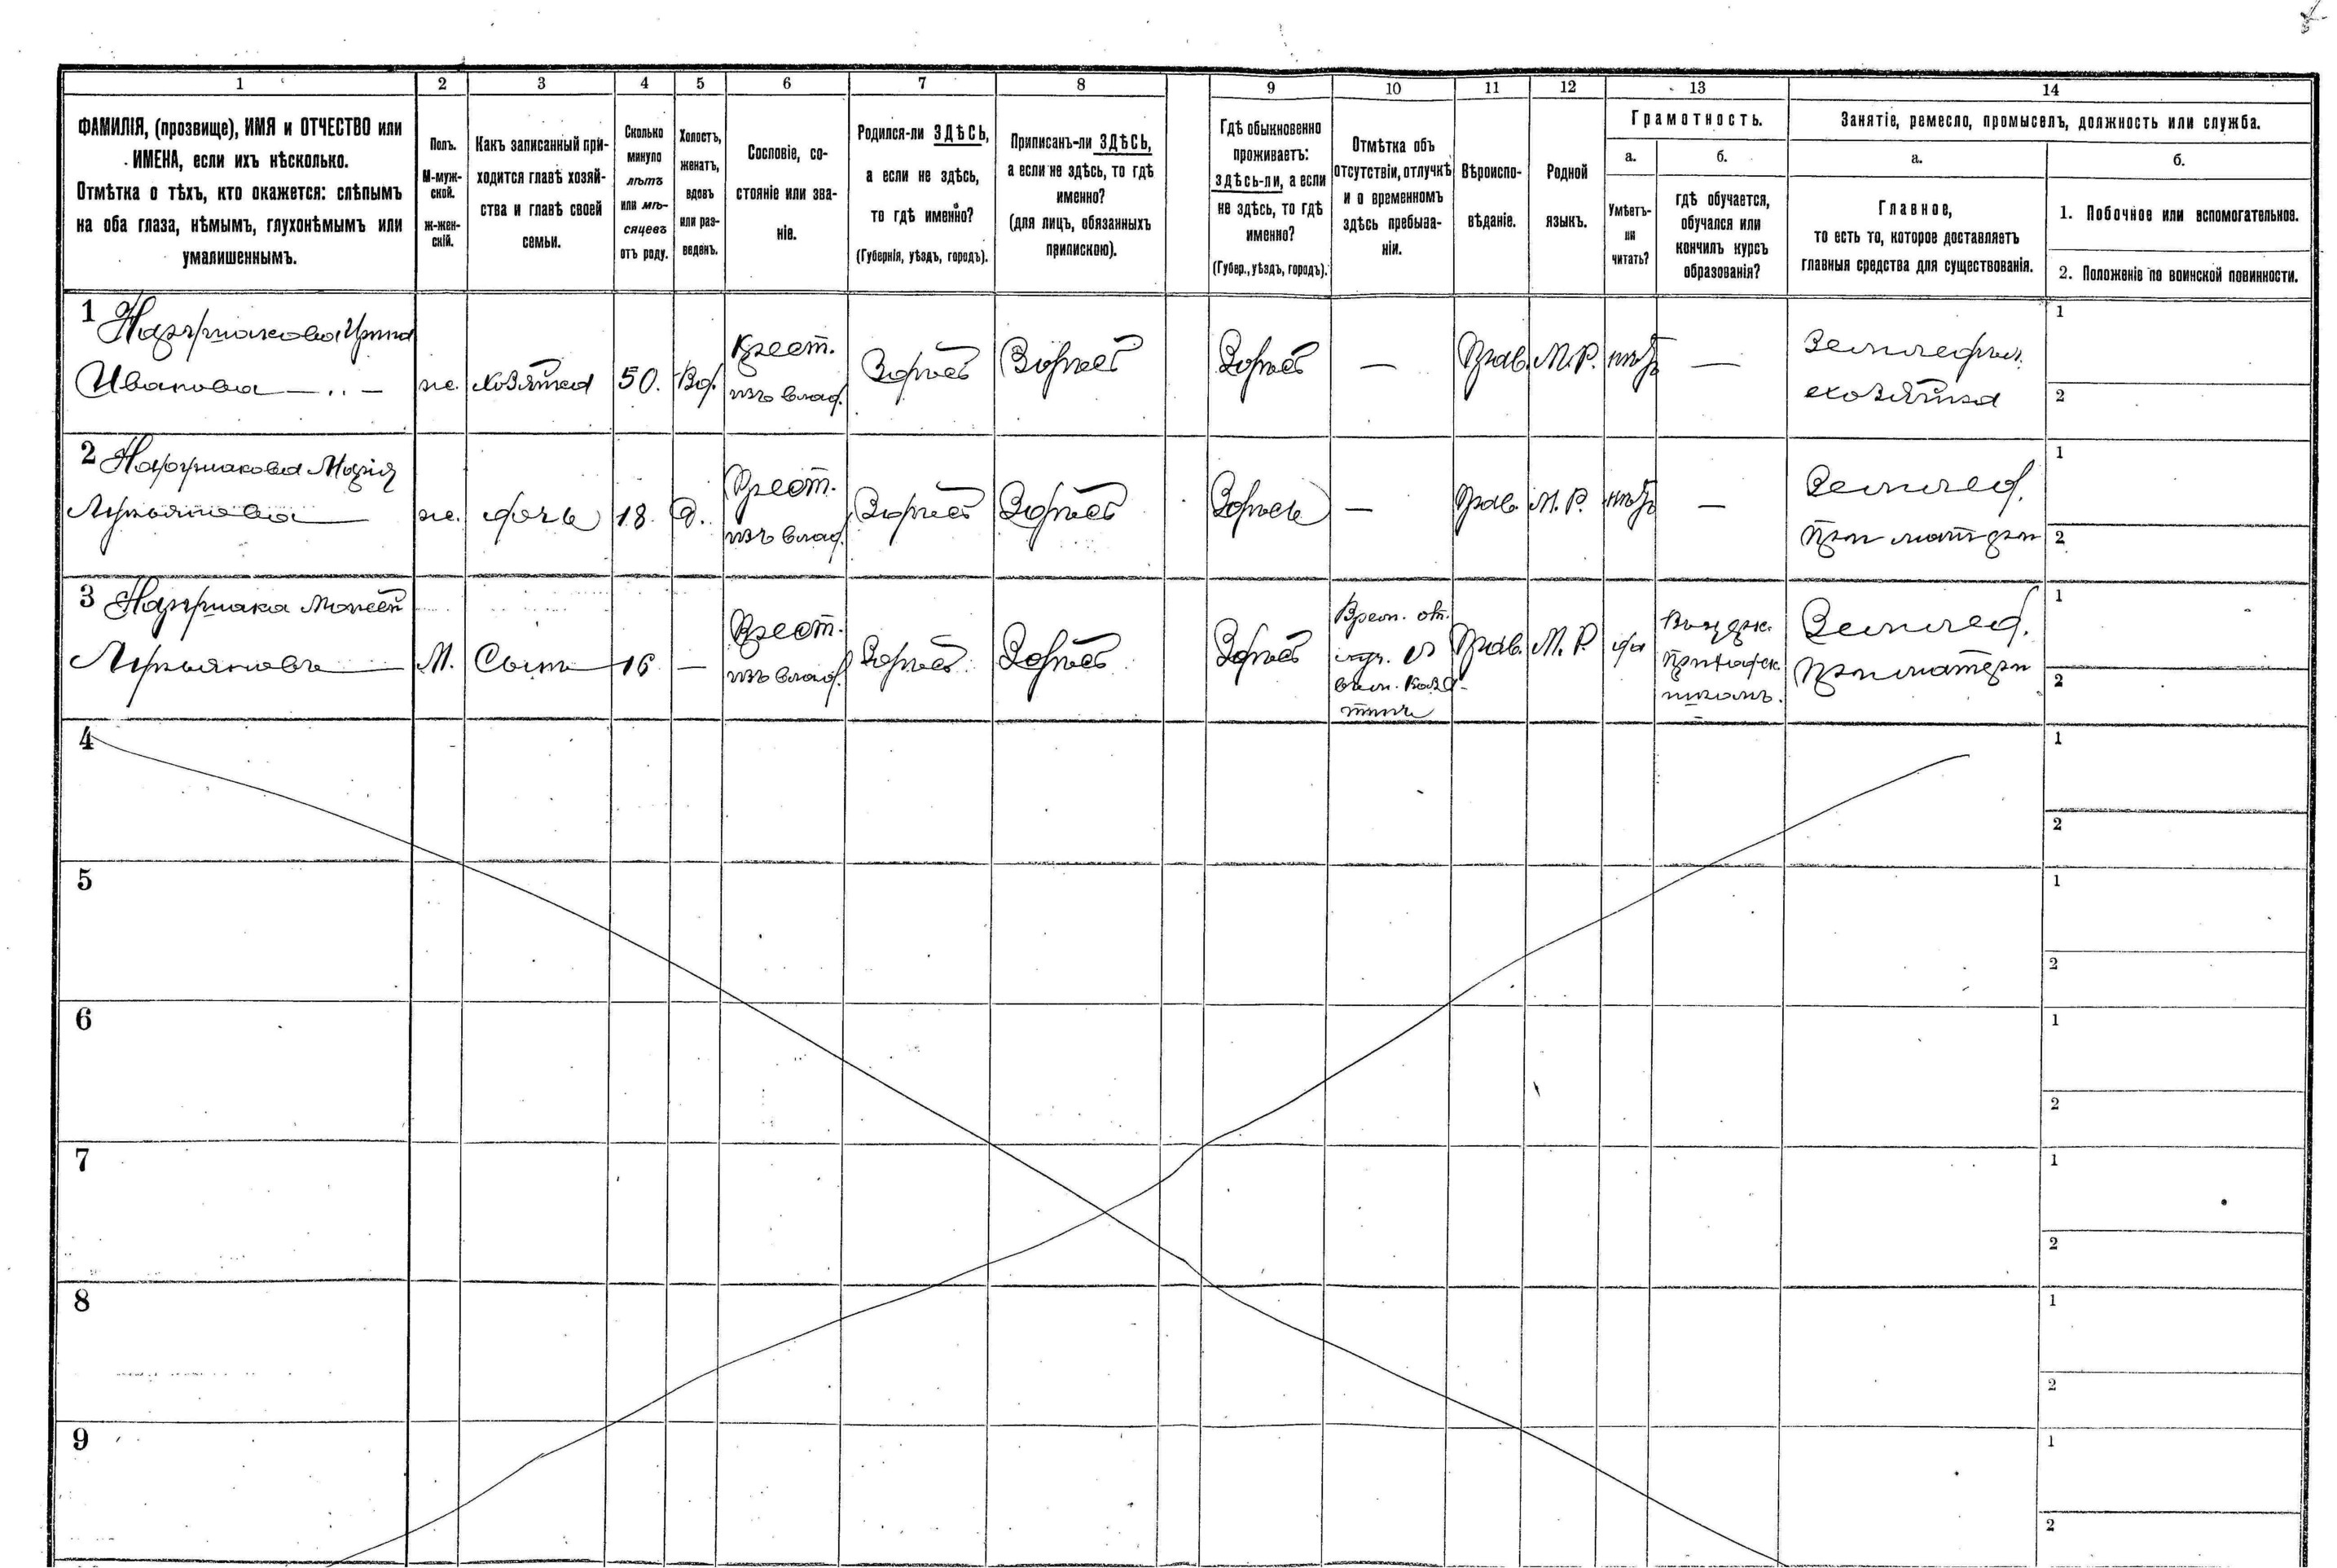 1 2 3 4 5 6 7 8 9 10 11 12 13 14
ФАМИЛІЯ, (прозвище), ИМЯ и ОТЧЕСТВО или
ИМЕНА, если ихъ нѣсколько.
Отмѣтка о тѣхъ, кто окажется: слѣпымъ
на оба глаза, нѣмымъ, глухонѣмымъ или
умалишеннымъ.
Полъ.
М-муж-
ской.
ж-жен-
скій.
Какъ записанный при-
ходится главѣ хозяй-
ства и главѣ своей
семьи.
Сколько
минуло
лѣтъ
или мѣ-
сяцевъ
отъ роду.
Холостъ,
женатъ,
вдовъ
или раз-
веденъ.
Сословіе, со-
стояніе или зва-
ніе.
Родился-ли ЗДѢСЬ,
а если не здѣсь,
то гдѣ именно?
(Губернія, уѣздъ, городъ).
Приписанъ-ли ЗДѢСЬ,
а если не здѣсь, то гдѣ
именно?
(для лицъ, обязанныхъ
припискою).
Гдѣ обыкновенно
проживаетъ:
здѣсь-ли, а если
не здѣсь, то гдѣ
именно?
(Губер., уѣздъ, городъ).
Отмѣтка объ
отсутствіи, отлучкѣ
и о временномъ
здѣсь пребыва-
ніи.
Вѣроиспо-
вѣданіе.
Родной
языкъ.
Грамотность.
а.
Умѣетъ-
ли
читать?
б.
гдѣ обучается,
обучался или
кончилъ курсъ
образованія?
Занятіе, ремесло, промыселъ, должность или служба.
а.
Главное,
то есть то, которое доставляетъ
главныя средства для существованія.
б.
1. Побочное или вспомогательное.
2. Положеніе по воинской повинности.
1
Ивановна — .. —
же.
хозяйка
50.
Вд.
Крест.
изъ влад.
Здѣсь
Здѣсь
Здѣсь
—
Прав.
М. Р.
нѣтъ
—
Земледѣл.
хозяйка
1
2
2
Марія
Лукьяновна
же.
дочь
18.
Д.
Крест.
изъ влад.
Здѣсь
Здѣсь
Здѣсь
—
Прав.
М. Р.
нѣтъ
—
Землед.
При матери
1
2
3
Моисей
Лукьяновъ
М.
Сынъ
16
—
Крест.
изъ влад.
Здѣсь
Здѣсь
Здѣсь
Врем. от.
Прав.
М. Р.
да
Землед.
При матери
1
2
4
1
2
5
1
2
6
1
2
7
1
2
8
1
2
9
1
2